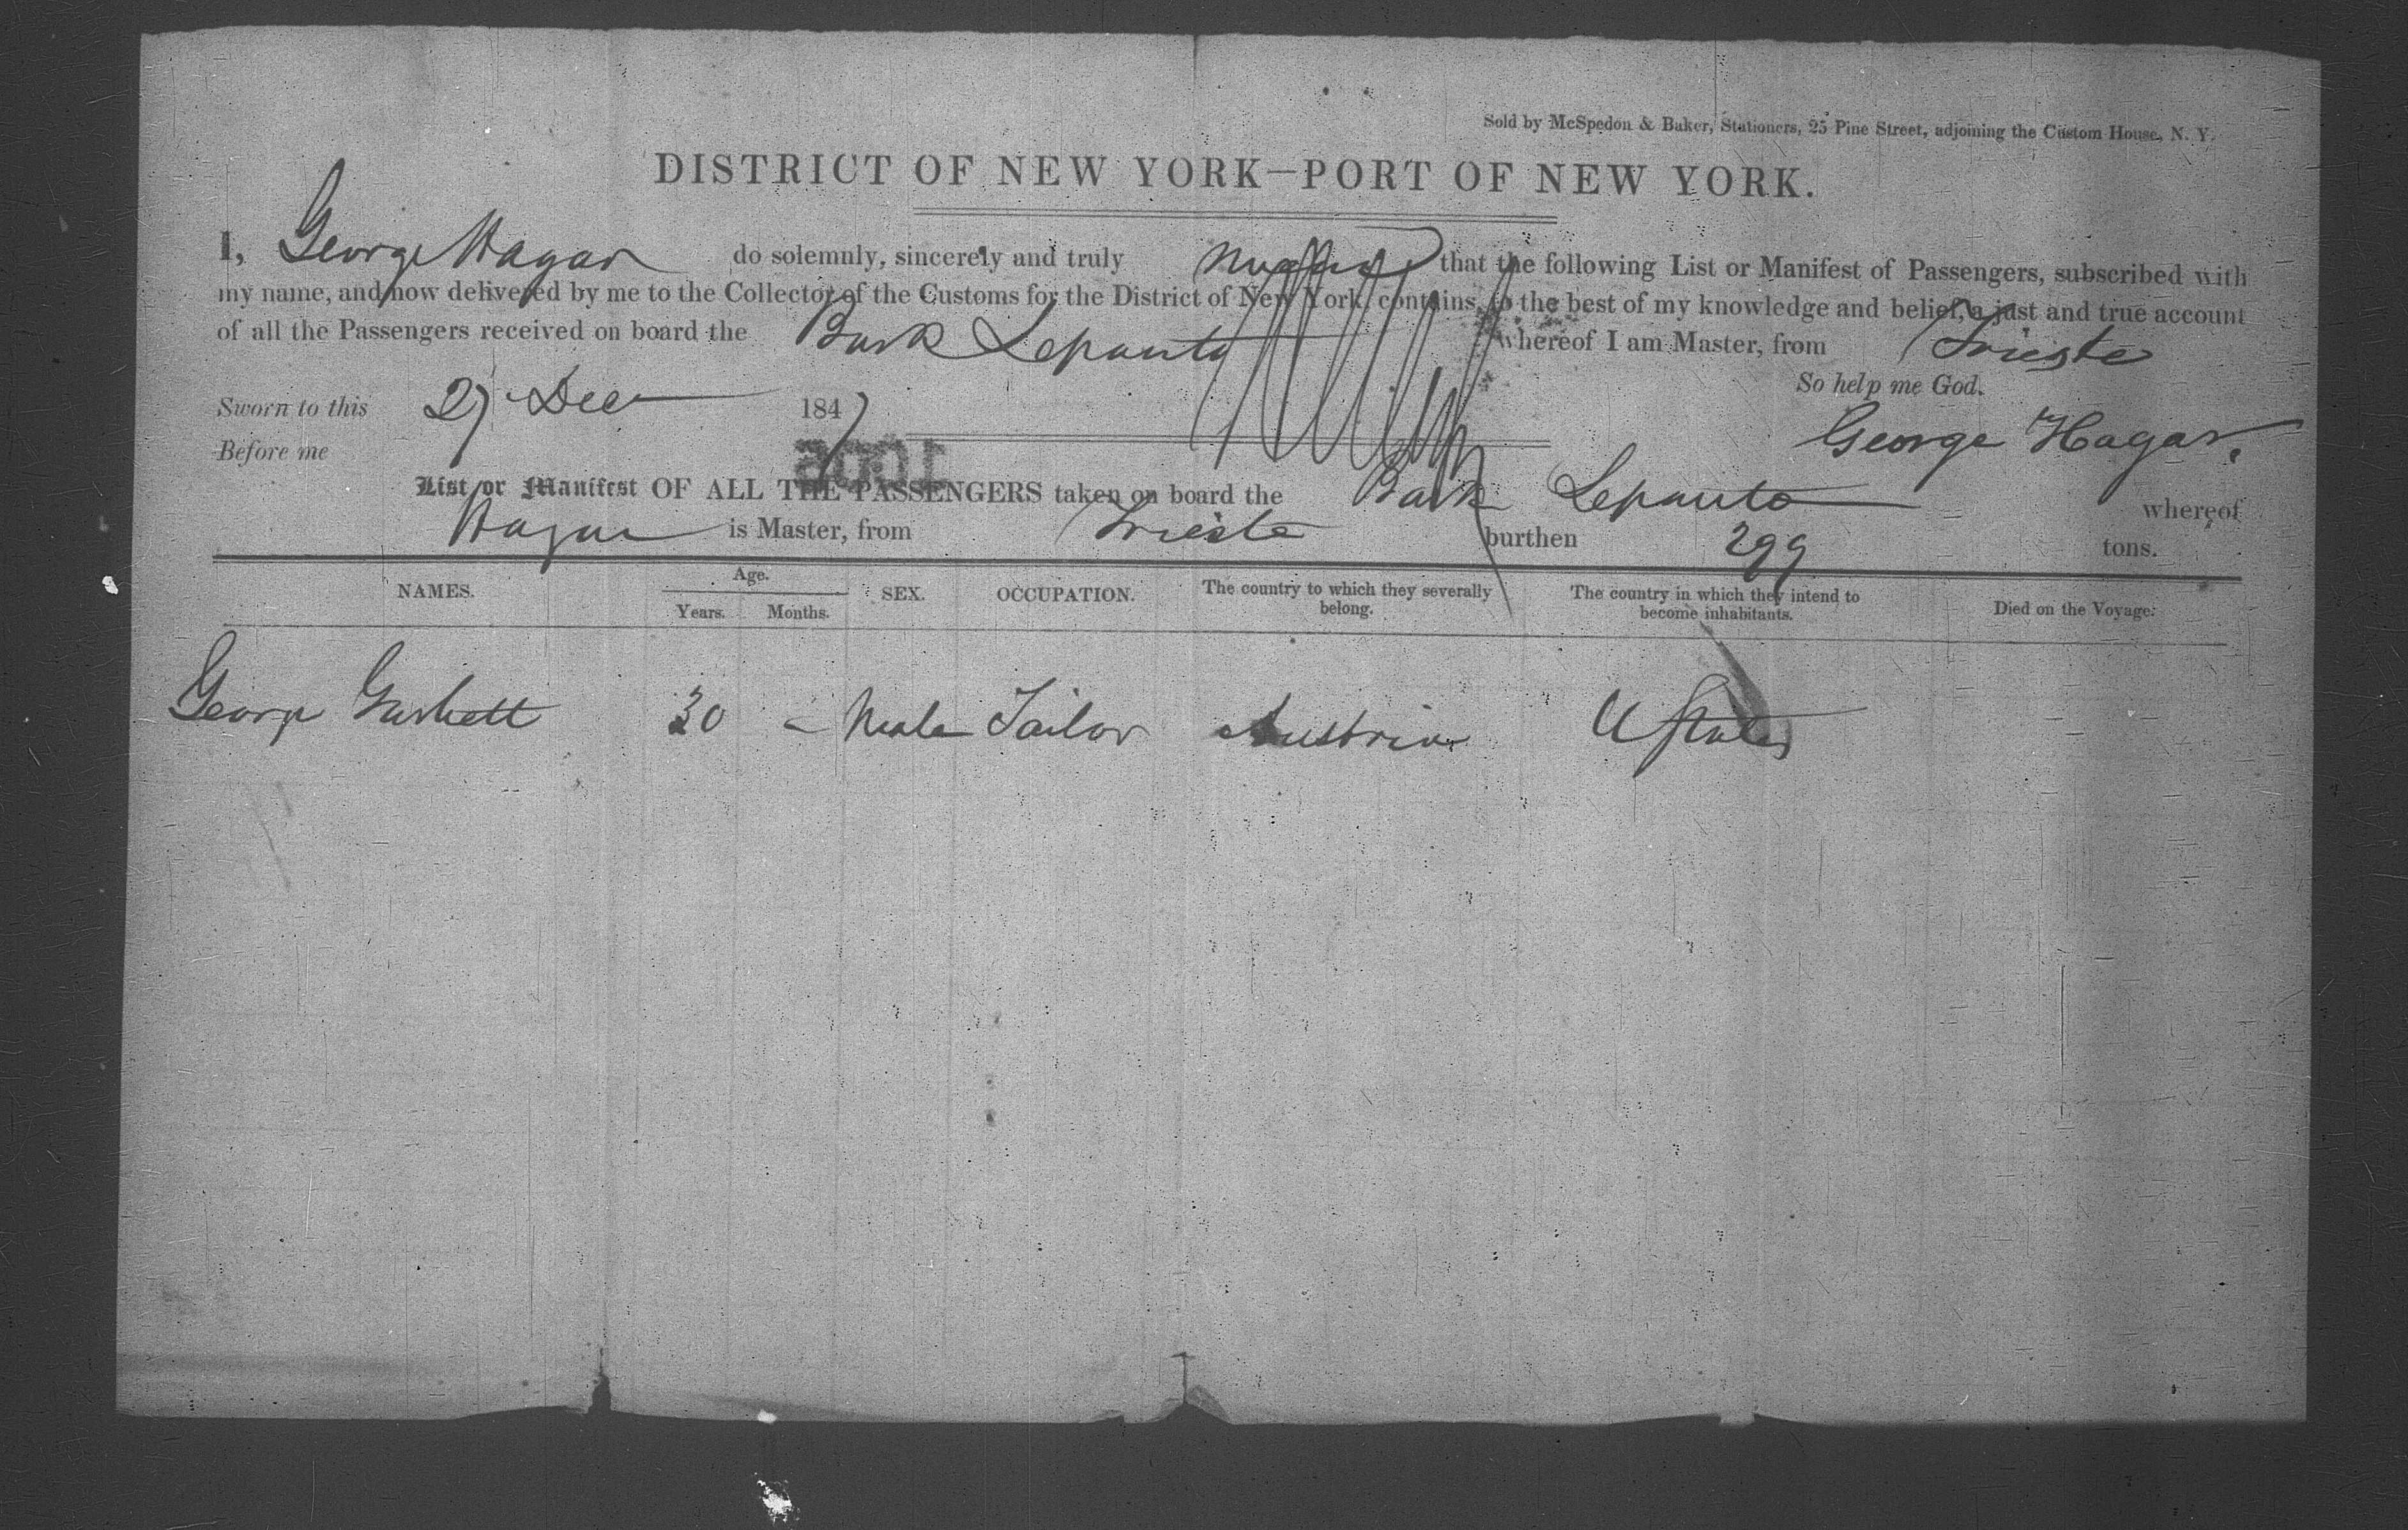 Sold by McSpedon & Baker, Stationers, 25 Pine Street, adjoining the Custom House, N. Y.
DISTRICT OF NEW YORK—PORT OF NEW YORK.
I, George Hagar do solemnly, sincerely and truly that the following List or Manifest of Passengers, subscribed with
my name, and now delivered by me to the Collector of the Customs for the District of New York, contains, to the best of my knowledge and belief, a just and true account
of all the Passengers received on board the Bark Lepanto whereof I am Master, from Trieste
So help me God.
Sworn to this 27 Dec 1847
George Hagar.
Before me
List or Manifest OF ALL THE PASSENGERS taken on board the Bark Lepanto whereof
Hagar is Master, from Trieste burthen 299 tons.
NAMES. Age. SEX. OCCUPATION. The country to which they severally belong. The country in which they intend to become inhabitants. Died on the Voyage.
Years. Months.
George 30 - Male Tailor Austria U States